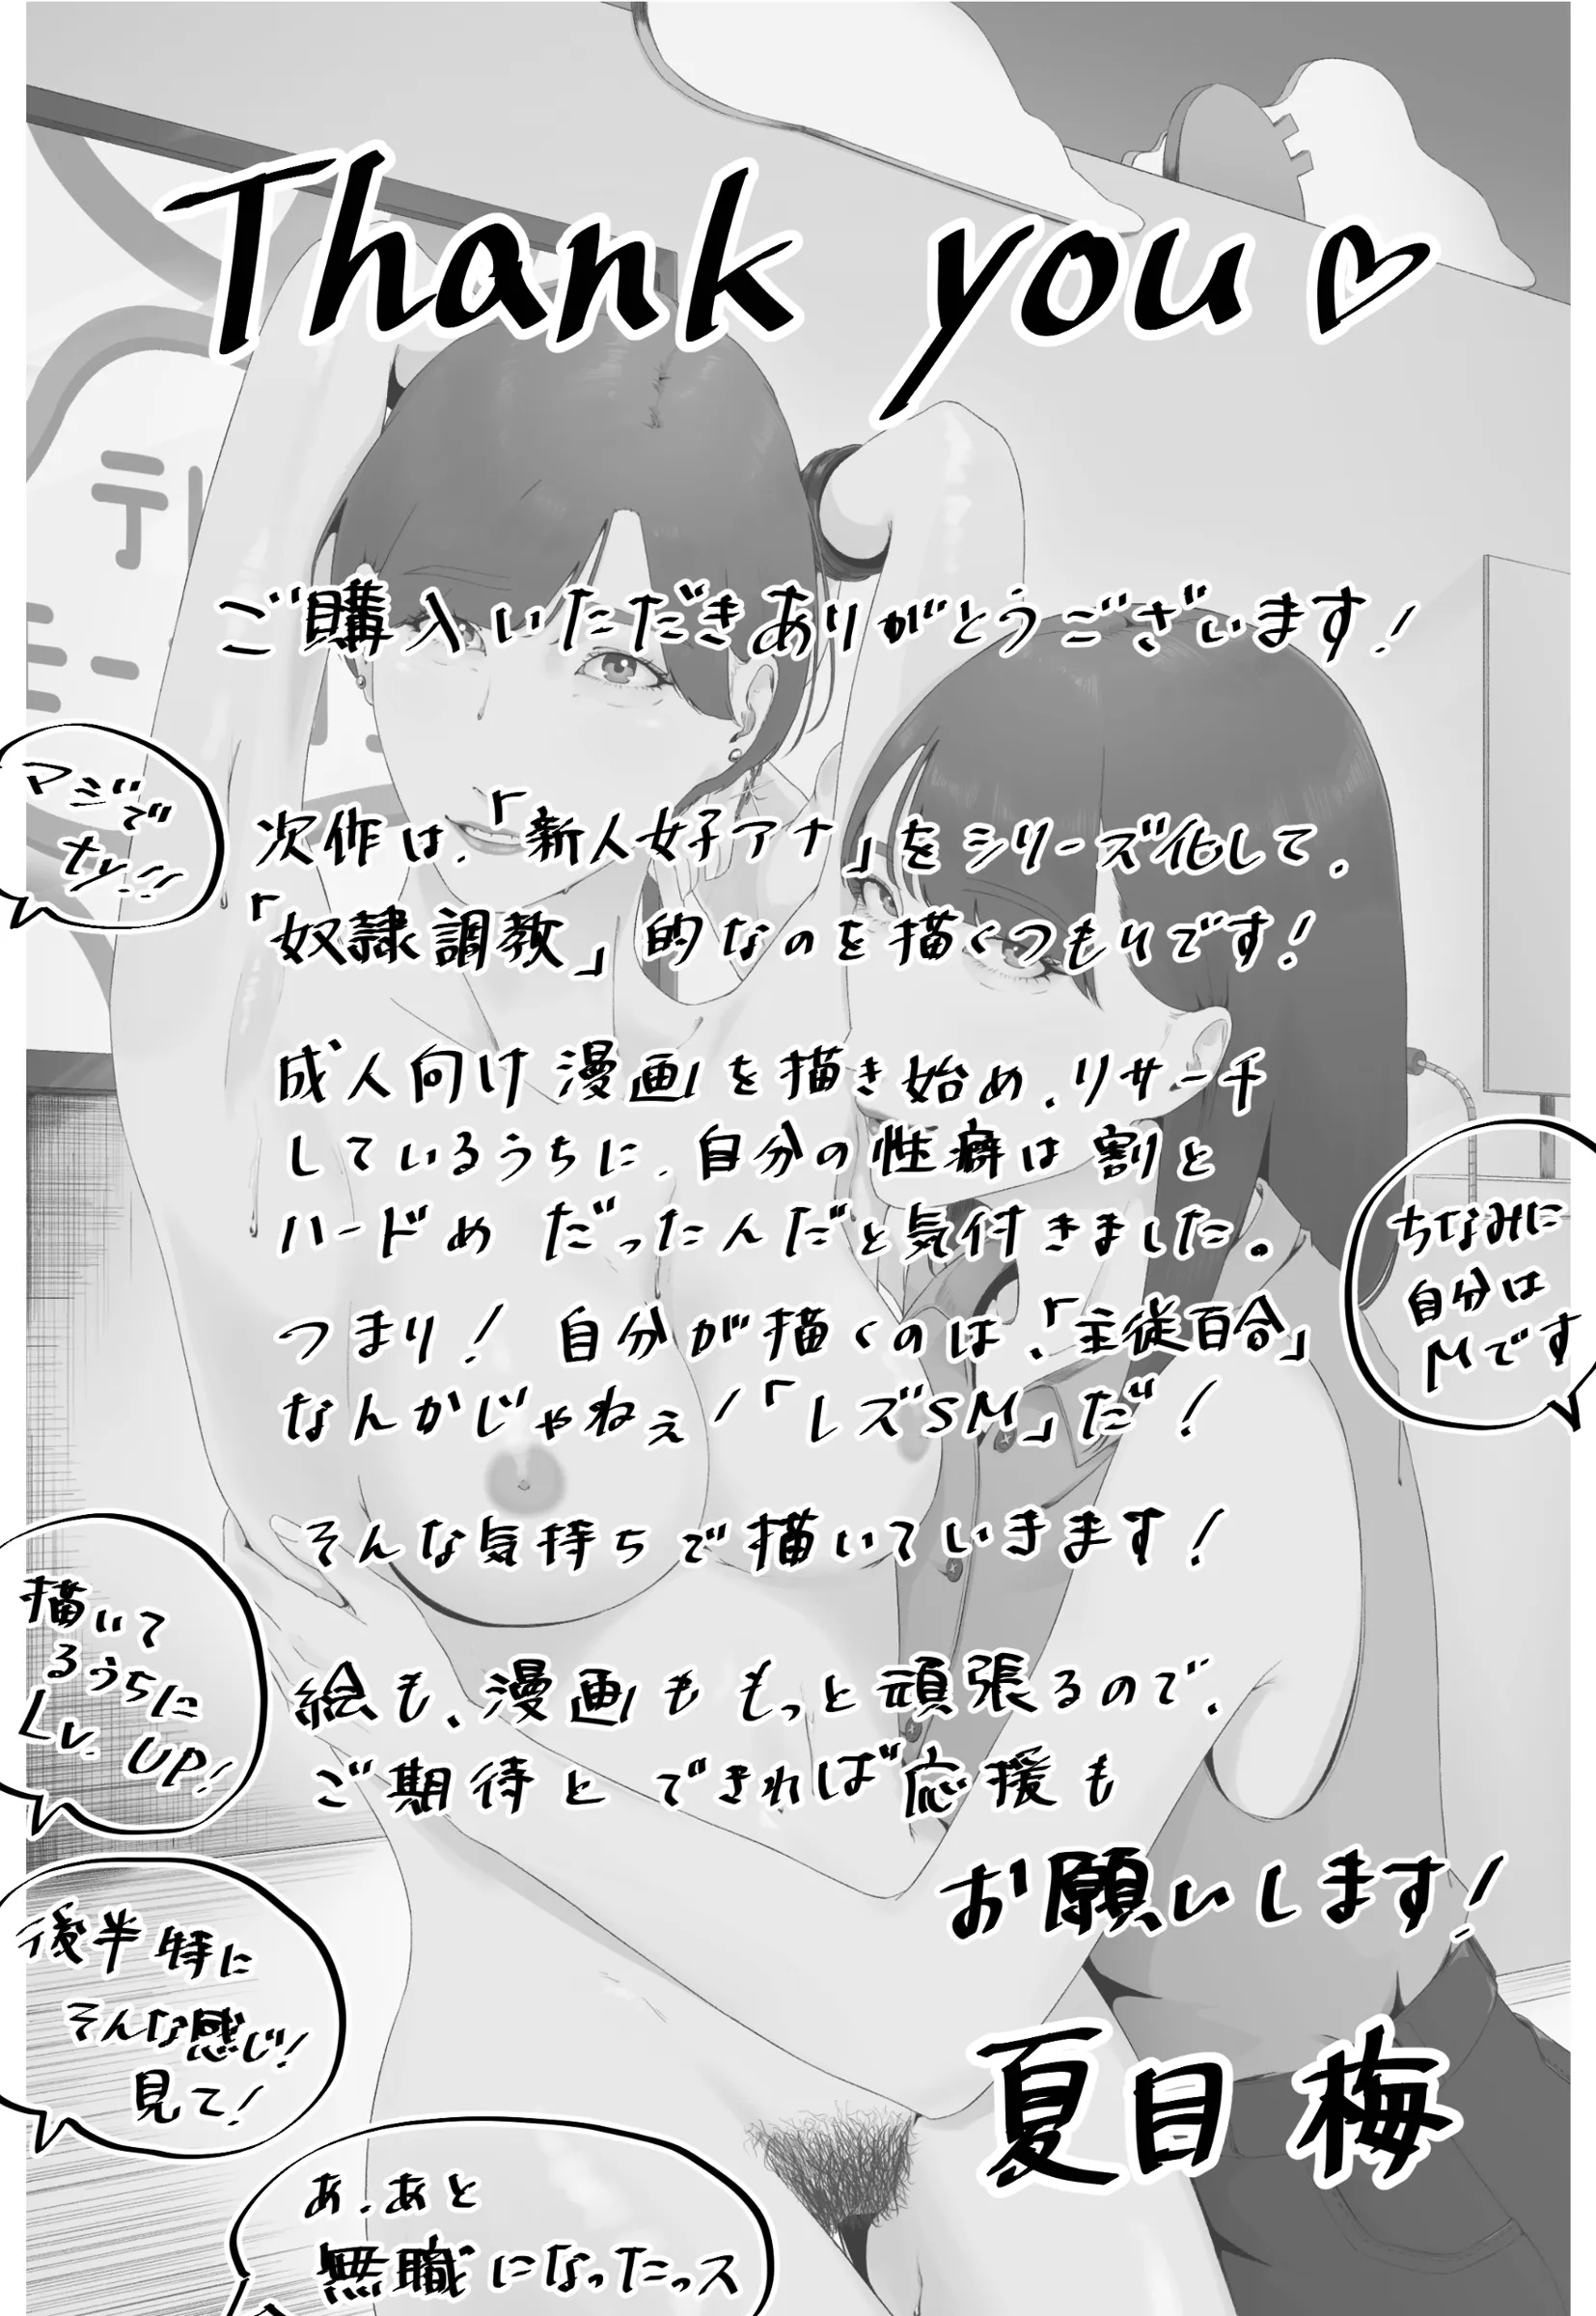 Thank you♡
ご購入いただきありがとうございます!
マジで
ty!!
次作は、「新人女子アナ」をシリーズ化して、
「奴隷調教」的なのを描くつもりです!
成人向け漫画を描き始め、リサーチ
しているうちに、自分の性癖は割と
ハードめだったんだと気付きました。
ちなみに
自分は
Mです
つまり!自分が描くのは、「主従百合」
なんかじゃねぇ!「レズSM」だ!
そんな気持ちで描いていきます!
描いて
るうちに
Lv.UP!
絵も、漫画ももっと頑張るので、
ご期待とできれば応援も
お願いします!
後半特に
そんな感じ!
見て!
夏目 梅
あ、あと
無職になったっス
テレ
モー